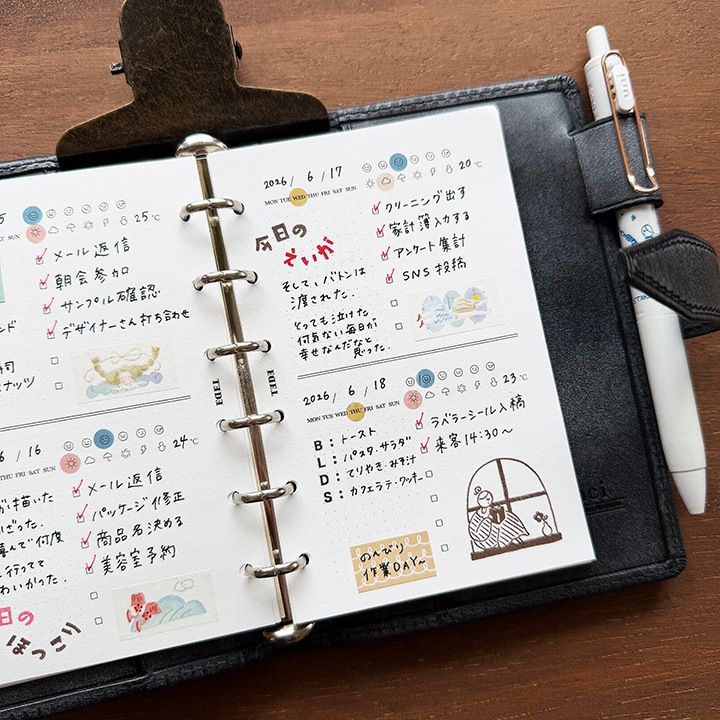 5
SUN
25℃
メール返信
朝会参加
サンプル確認
デザイナーさん打ち合わせ
ンド
司
ナッツ
6/16
THU FRI SAT SUN
24℃
メール返信
パッケージ修正
商品名決める
美容室予約
が描いた
ざった.
喜んで何度
行ってて
わいかった.
日の
ほっこり
TDE
TDE
2026/6/17
MON TUE WED THU FRI SAT SUN
20℃
今日の
せいか
クリーニング出す
家計簿入力する
アンケート集計
SNS投稿
そして、バトンは
渡された.
とっても泣けた.
何気ない毎日が
幸せなんだなと
思った.
2026/6/18
MON TUE WED THU FRI SAT SUN
23℃
B:トースト
L:パスタ・サラダ
D:てりやき・みそ汁
S:カフェラテ・クッキー
ラベラーシール入稿
来客14:30〜
のんびり
作業DAY〜